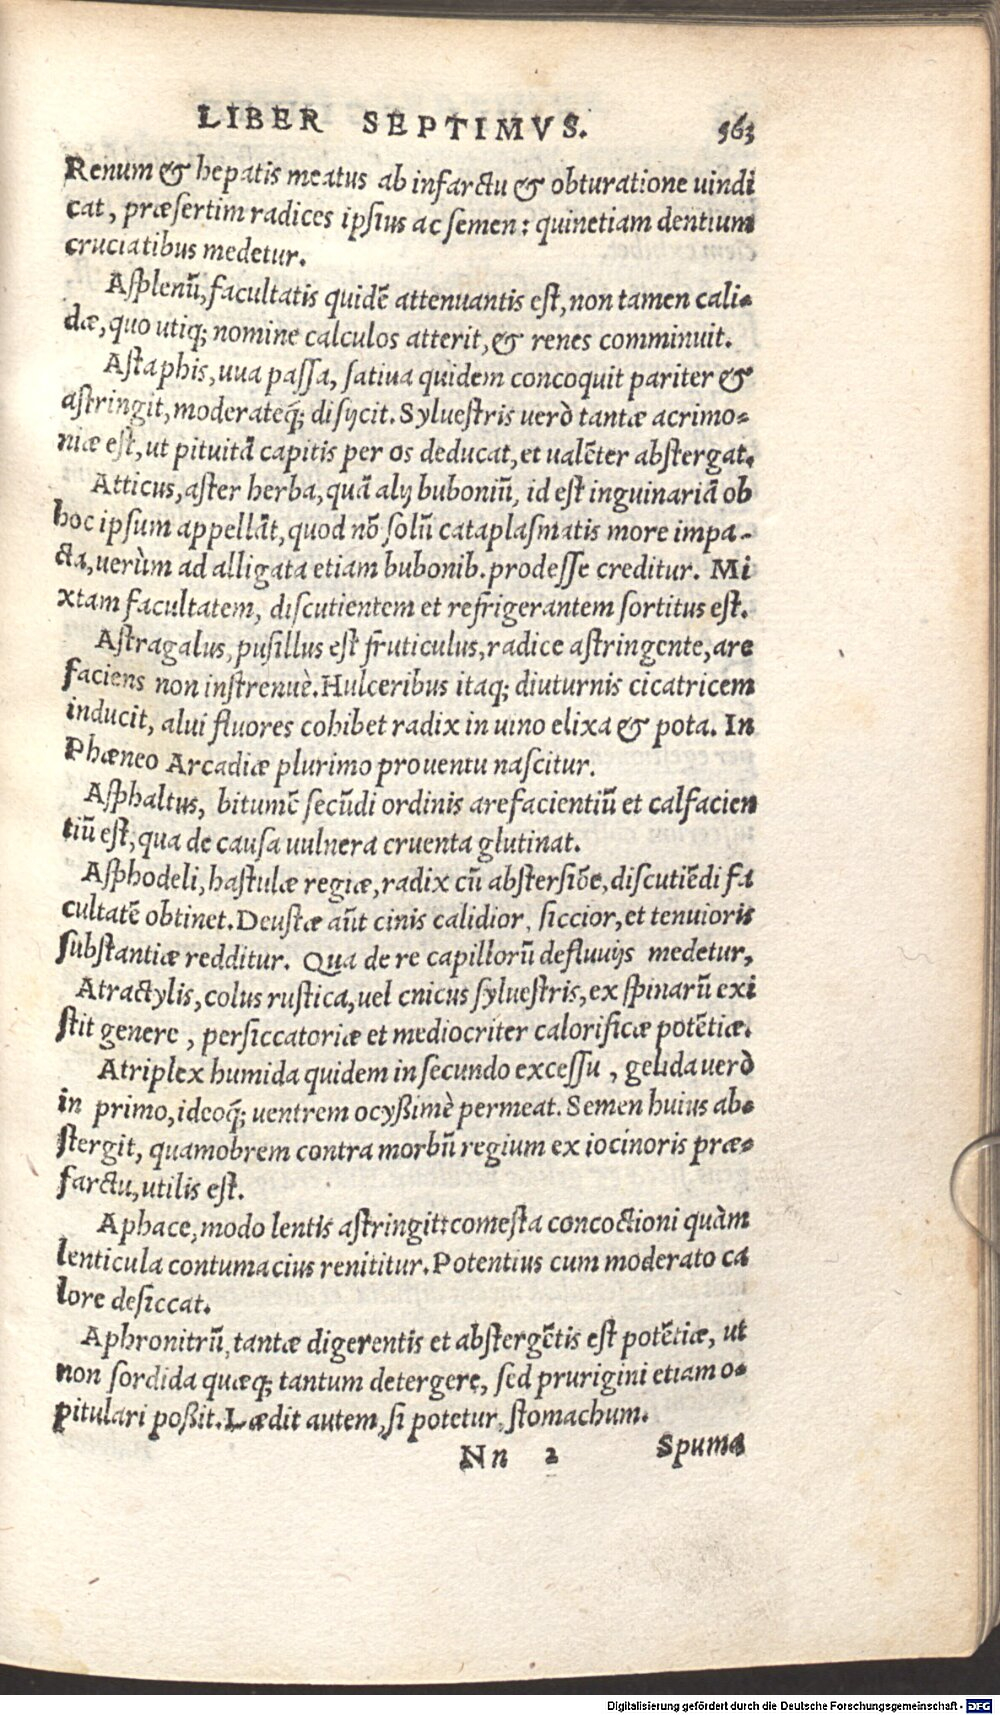 LIBER SEPTIMVS. 563
Renum & hepatis meatus ab infarctu & obturatione uindi
cat, præsertim radices ipsius ac semen: quinetiam dentium
cruciatibus medetur.
Asplenũ, facultatis quidẽ attenuantis est, non tamen cali-
dæ, quo utiq; nomine calculos atterit, & renes comminuit.
Astaphis, uua passa, satiua quidem concoquit pariter &
astringit, moderateq́; disijcit. Syluestris verò tantæ acrimo-
niæ est, ut pituitã capitis per os deducat, et ualẽter abstergat.
Atticus, aster herba, quã alij buboniũ, id est inguinariã ob
hoc ipsum appellãt, quod nõ solũ cataplasmatis more impa-
cta, uerùm ad alligata etiam bubonib. prodesse creditur. Mi
xtam facultatem, discutientem et refrigerantem sortitus est.
Astragalus, pusillus est fruticulus, radice astringente, are
faciens non instrenuè. Hulceribus itaq; diuturnis cicatricem
inducit, alui fluores cohibet radix in uino elixa & pota. In
Phæneo Arcadiæ plurimo prouentu nascitur.
Asphaltus, bitumẽ secũdi ordinis arefacientiũ et calfacien
tiũ est, qua de causa uulnera cruenta glutinat.
Asphodeli, hastulæ regiæ, radix cũ abstersiõe, discutiẽdi fa
cultatẽ obtinet. Deustæ aũt cinis calidior, siccior, et tenuioris
substantiæ redditur. Qua de re capillorũ defluuijs medetur,
Atractylis, colus rustica, uel cnicus syluestris, ex spinarũ exi
stit genere, persiccatoriæ et mediocriter calorificæ potẽtiæ.
Atriplex humida quidem in secundo excessu, gelida uerò
in primo, ideoq́; uentrem ocyßimè permeat. Semen huius ab-
stergit, quamobrem contra morbũ regium ex iocinoris præ-
farctu, utilis est.
Aphace, modo lentis astringit: comesta concoctioni quàm
lenticula contumacius renititur. Potentius cum moderato ca
lore desiccat.
Aphronitrũ, tantæ digerentis et abstergẽtis est potẽtiæ, ut
non sordida quæq; tantum detergere, sed prurigini etiam o-
pitulari poßit. Lædit autem, si potetur, stomachum.
Nn 2 Spuma
Digitalisierung gefördert durch die Deutsche Forschungsgemeinschaft - DFG